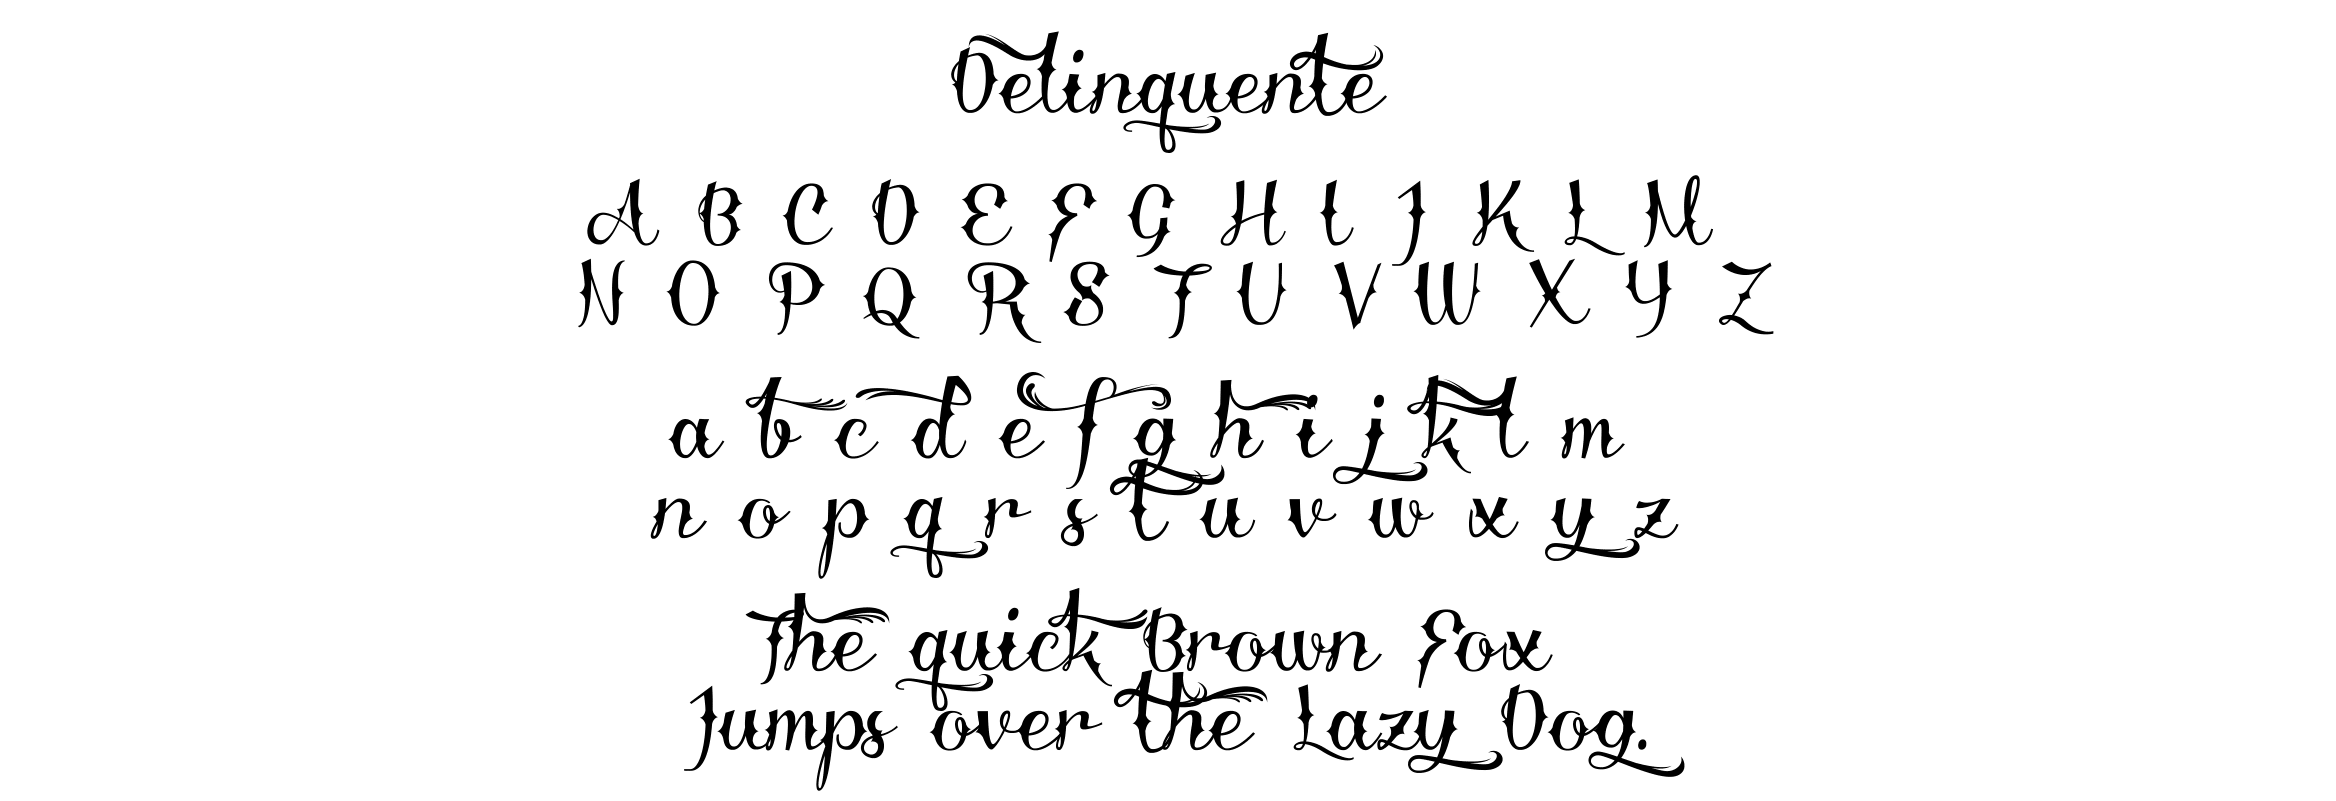 Delinquente
A B C D E F G H I J K L M
N O P Q R S T U V W X Y Z
a b c d e f g h i j k l m
n o p q r s t u v w x y z
The quick Brown Fox
Jumps over the Lazy Dog.